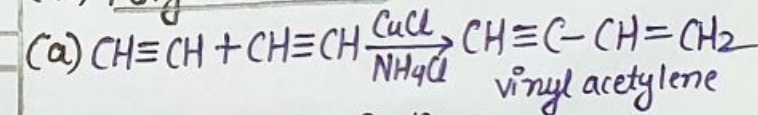 (a) CH≡CH + CH≡CH CuCl NH4Cl → CH≡C-CH=CH2
vinyl acetylene